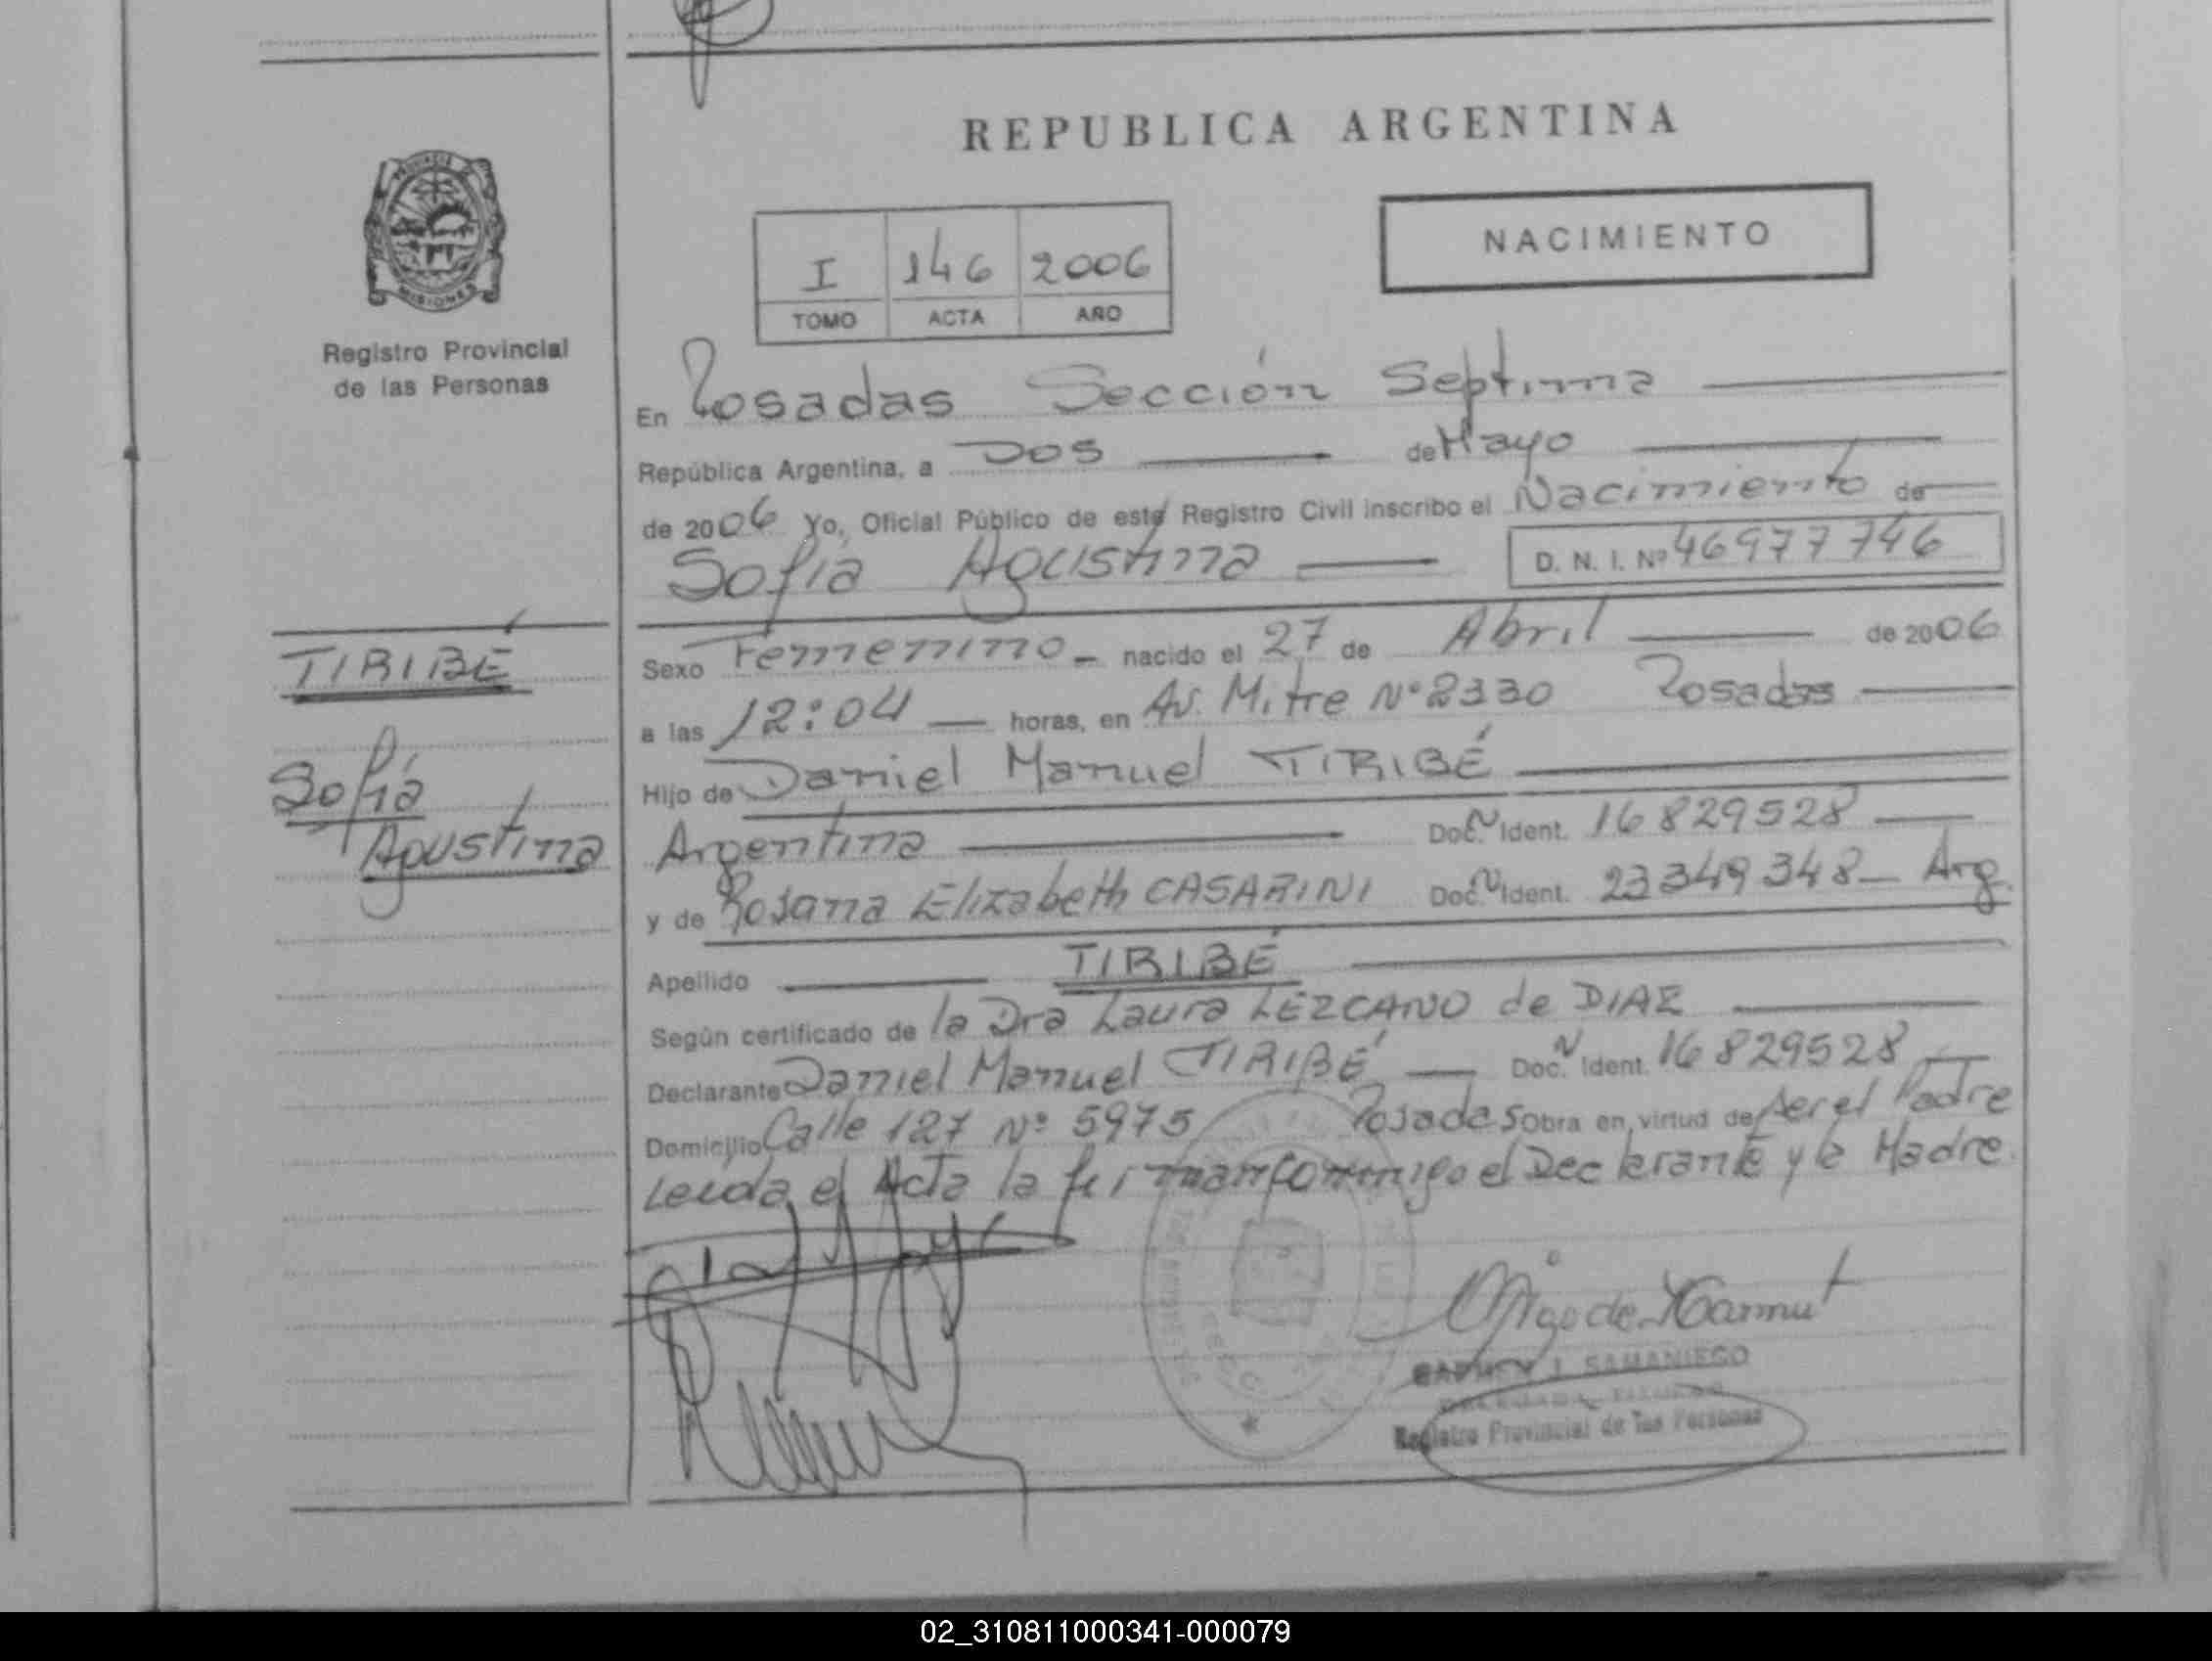 REPUBLICA ARGENTINA
NACIMIENTO
I 146 2006
TOMO ACTA AÑO
PROVINCIA DE
MISIONES
Registro Provincial
de las Personas
En Posadas Sección Septima
República Argentina, a Dos de Mayo
de 2006 Yo, Oficial Público de este Registro Civil inscribo el Nacimiento de
Sofía Agustina D. N. I. Nº 46977746
TIRIBÉ
Sofía
Agustina
Sexo Femenino - nacido el 27 de Abril de 2006
a las 12:04 horas, en Av. Mitre Nº 2330 Posadas
Hijo de Daniel Manuel TIRIBÉ
Argentina Doc. N Ident. 16829528
y de Rosana Elizabeth CASARINI Doc. N Ident. 23349348 - Arg.
Apellido TIRIBÉ
Según certificado de la Dra Laura LEZCANO de DIAZ
Declarante Daniel Manuel TIRIBÉ Doc. N Ident. 16829528
Domicilio Calle 127 Nº 5975 Posadas Obra en virtud de ser el Padre
Leida el Acta la firman conmigo el Declarante y la Madre.
CARMEN I. SAMANIEGO
Registro Provincial de las Personas
02_310811000341-000079